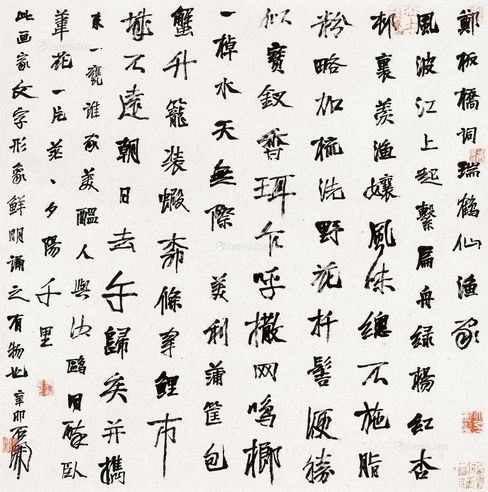 鄭板橋詞瑞鶴仙漁家
風波江上起繫扁舟綠楊紅杏
邨裏羨漁孃風味總不施脂
粉略加梳洗野花扦髻便勝
似寶釵香珥乍呼撒网鳴榔
一棹水天無際美利蒲筐包
蟹竹籠裝蝦柳條穿鯉市
城不遠朝日去午歸矣并攜
來一甕誰家美醞人與沙鷗同醉臥
葦花一片茫茫夕陽千里
此画家文字形象鮮明誦之有物也辛卯石